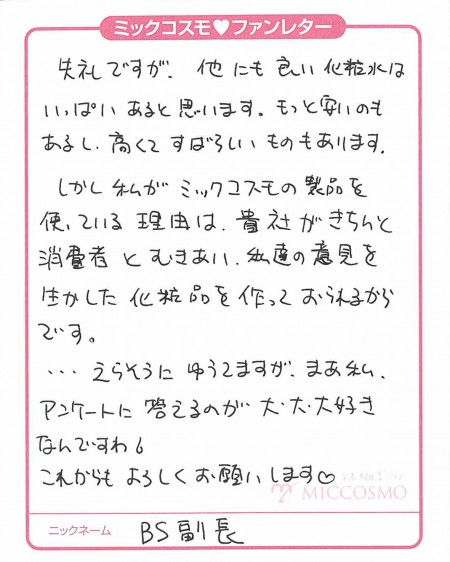 ミックコスモ♥ファンレター
失礼ですが、他にも良い化粧水は
いっぱいあると思います。もっと安いのも
あるし、高くてすばらしいものもあります。
しかし私がミックコスモの製品を
使っている理由は、貴社がきちんと
消費者とむきあい、私達の意見を
生かした化粧品を作っておられるから
です。
・・・えらそうにゆうてますが、まあ私、
アンケートに答えるのが大・大・大好き
なんですわ
これからもよろしくお願いします♡
MICCOSMO
ニックネーム BS副長